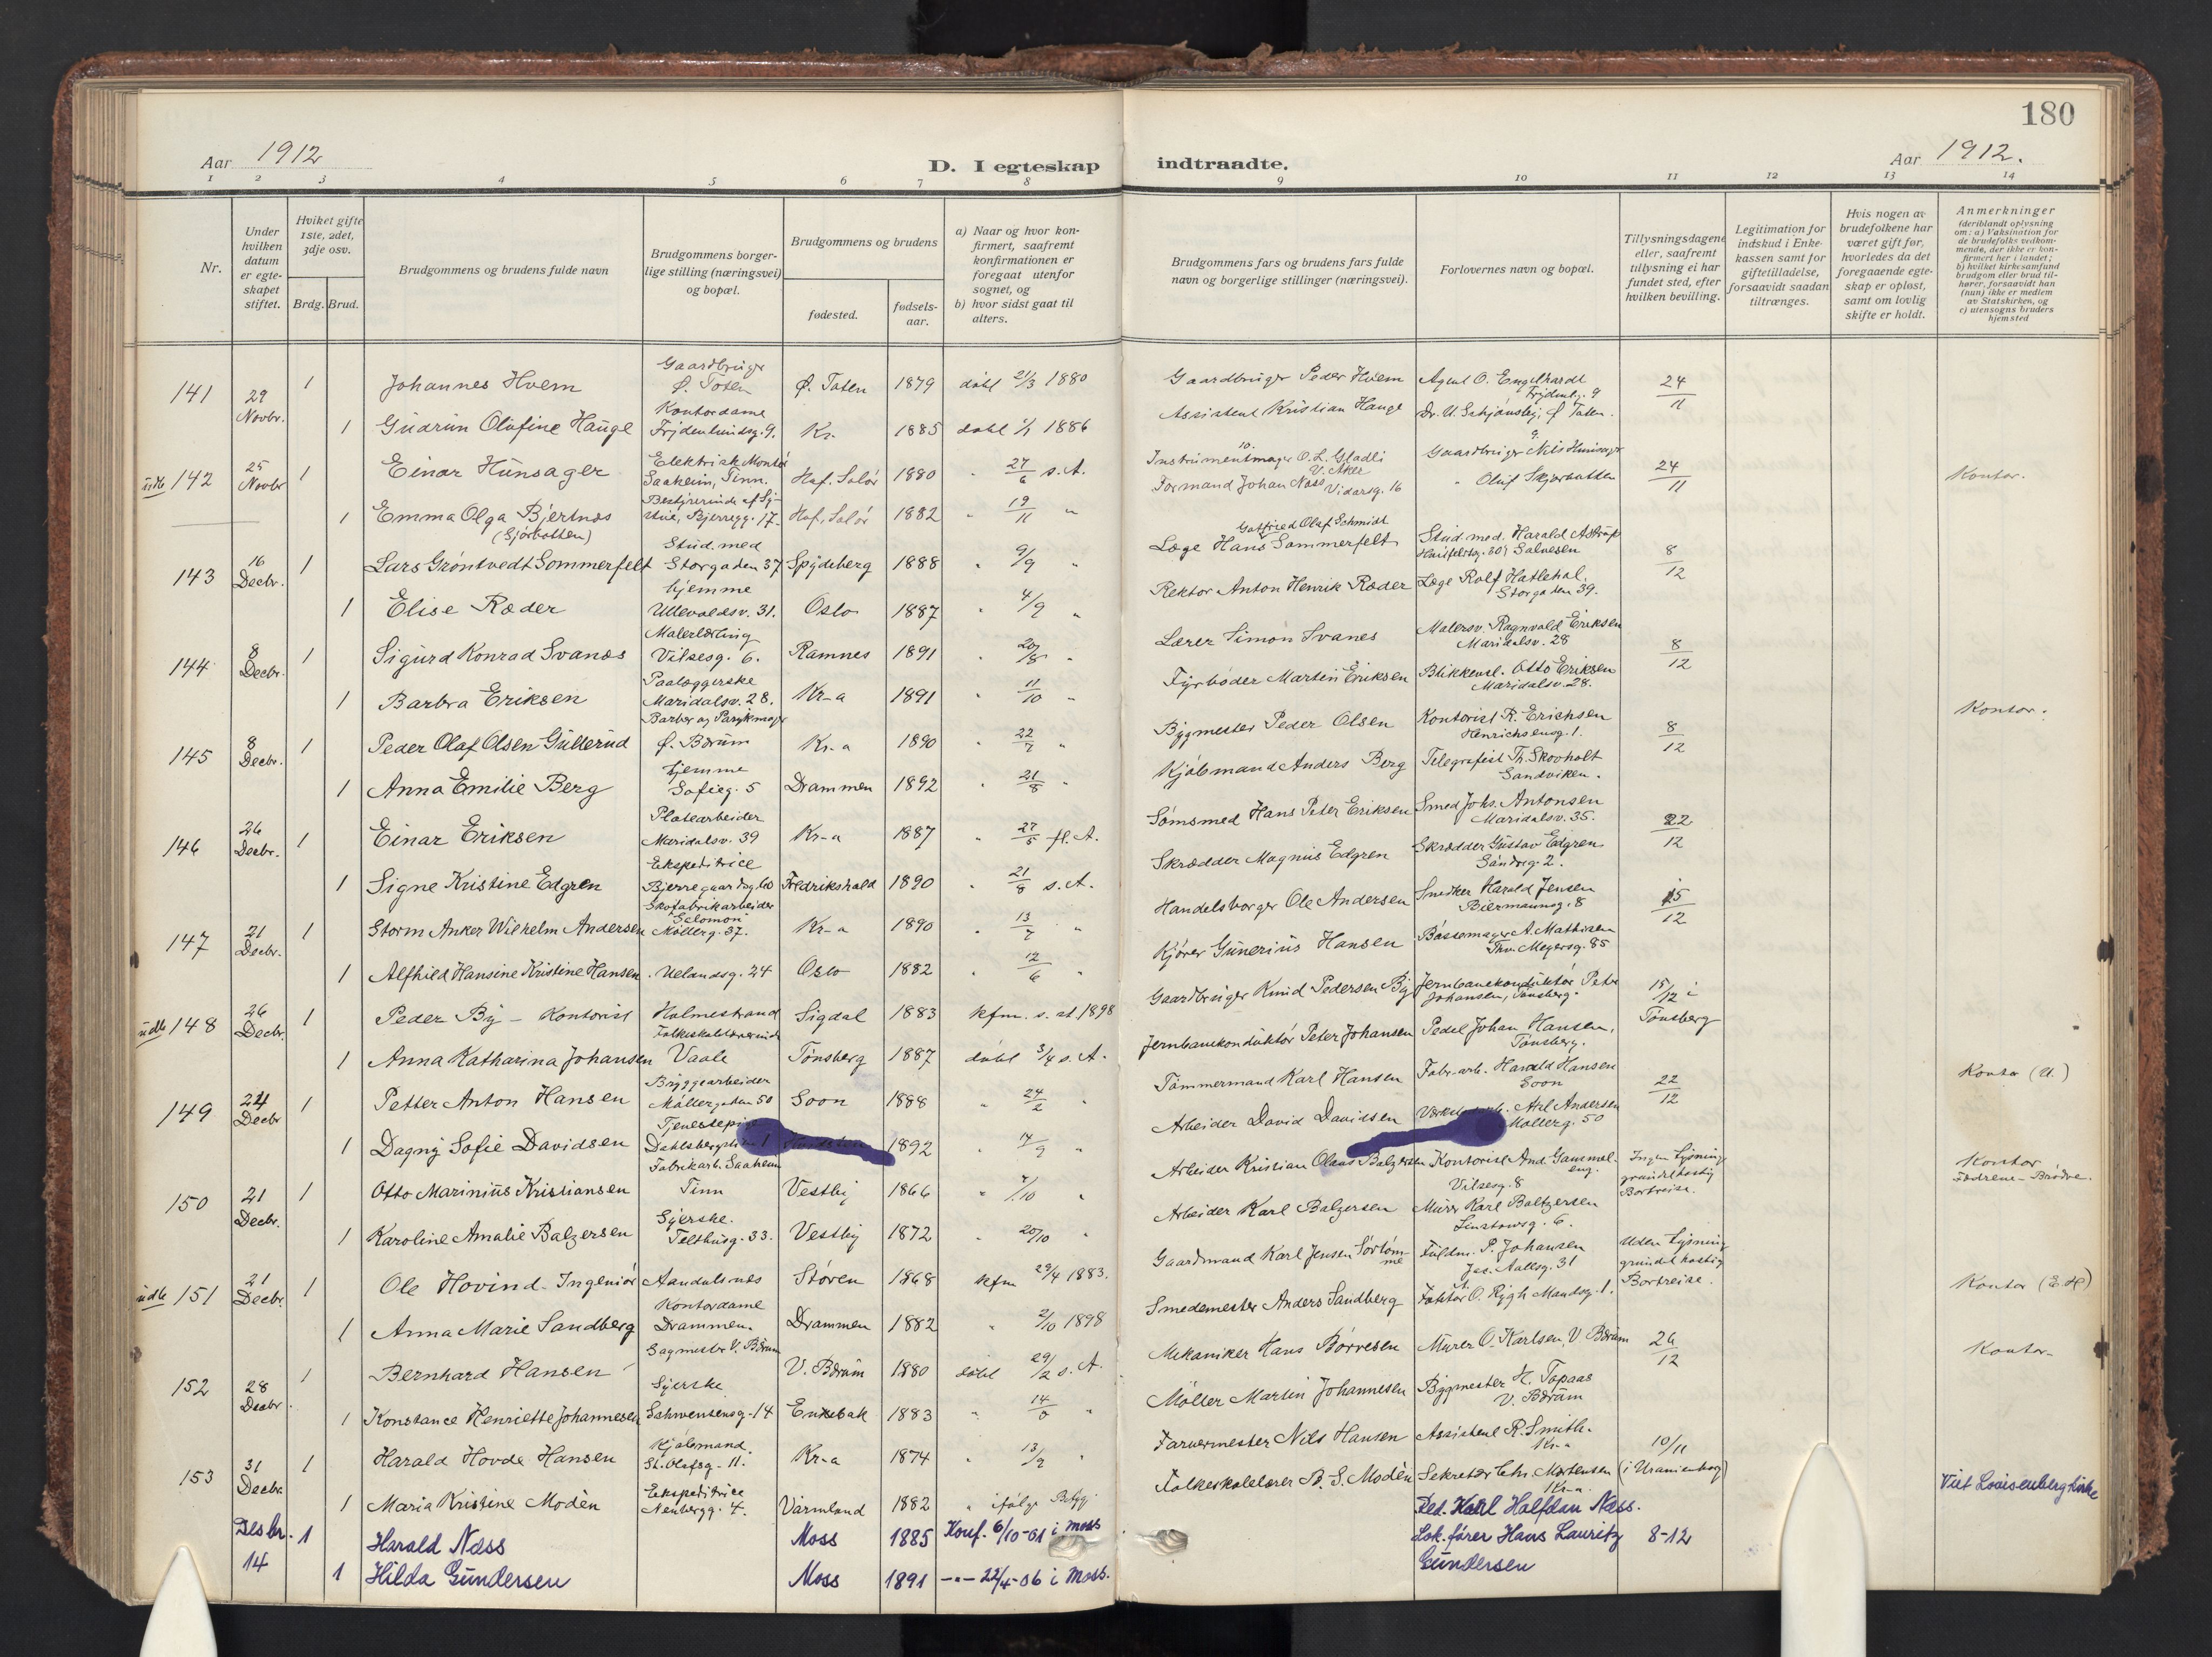 180
Aar 1912
D. I egteskap indtraadte.
Aar 1912.
1 2 3 4 5 6 7 8 9 10 11 12 13 14
Nr.
Under hvilken datum er egteskapet stiftet.
Hviket gifte 1ste, 2det, 3dje osv.
Brdg. Brud.
Brudgommens og brudens fulde navn
Brudgommens borgerlige stilling (næringsvei) og bopæl.
Brudgommens og brudens
fødested.
fødselsaar.
a) Naar og hvor konfirmert, saafremt konfirmationen er foregaat utenfor sognet, og
b) hvor sidst gaat til alters.
Brudgommens fars og brudens fars fulde navn og borgerlige stillinger (næringsvei).
Forlovernes navn og bopæl.
Tillysningsdagene eller, saafremt tillysning ei har fundet sted, efter hvilken bevilling.
Legitimation for indskud i Enkekassen samt for giftetilladelse, forsaavidt saadan tiltrænges.
Hvis nogen av brudefolkene har været gift før, hvorledes da det foregaaende egteskap er opløst, samt om lovlig skifte er holdt.
Anmerkninger
(deriblandt oplysning om: a) Vaksination for de brudefolks vedkommende, der ikke er konfirmert her i landet;
b) hvilket kirkesamfund brudgom eller brud tilhører, forsaavidt han (hun) ikke er medlem av Statskirken, og
c) utensogns bruders hjemsted
141 29 Novbr. 1 Johannes Hvem Gaardbruger Ø. Toten Ø. Toten 1879 døbt 21/3 1880 Gaardbruger Peder Hvem Agent O. Engelhardt Frydenlg. 9 24/11
1 Gudrun Olufine Hauge Kontordame Frydenlundsg. 9. Kr. 1885 døbt 1/1 1886 Assistent Kristian Hauge Dr. U. Schjønsby, Ø Toten.
udb 142 25 Novbr 1 Einar Hunsager Elektrisk Montør Saaheim, Tinn. Hof, Solør 1880 " 27/6 s. A. Instrumentmager O. L. Gladli V. Aker Gaardbruger Nils Hunsager 24/11 Kontor.
1 Emma Olga Bjertnæs (Sjørbotten) Bestyrerinde af Systue, Bjerregg. 17. Hof, Solør 1882 " 19/11 " Formand Johan Næss Vidarsg. 16 " Oluf Skjørbotten
143 16 Decbr. 1 Lars Grøntvedt Sommerfelt Stud. med Storgaden 37 Spydeberg 1888 " 9/9 " Læge Hans Gotfried Olaf Schmidt Sommerfelt Stud. med. Harald Astrup Salvesen 8/12
1 Elise Ræder hjemme Ullevoldsv. 31. Oslo 1887 " 4/9 " Rektor Anton Henrik Ræder Læge Rolf Hatlehol. Storgaden 39.
144 8 Decbr. 1 Sigurd Konrad Svanæs Malerlærling Vilsesg. 6. Ramnes 1891 " 20/8 " Lærer Simon Svanes Malersv. Ragnvald Eriksen Maridalsv. 28 8/12
1 Barbra Eriksen Paalæggerske Maridalsv. 28. Kr-a 1891 " 11/10 " Fyrbøder Martin Eriksen Blikkensl. Otto Eriksen Maridalsv. 28.
145 8 Decbr. 1 Peder Olaf Olsen Gullerud Barber og Parykmager Ø. Bærum Kr.a 1890 " 22/7 " Bygmester Peder Olsen Kontorist R. Erichsen Henrichsensg. 1. 8/12 Kontor.
1 Anna Emilie Berg hjemme Sofieg. 5 Drammen 1892 " 21/8 " Kjøbmand Anders Berg Telegrafist Th. Skovholt Sandviken.
146 26 Decbr. 1 Einar Eriksen Platearbeider Maridalsv. 39 Kr-a 1887 " 27/5 fl. A. Sømsmed Hans Peter Eriksen Smed Johs. Antonsen Maridalsv. 35. 22/12
1 Signe Kristine Edgren Ekspeditrice Bjerregaardsg. 60 Fredrikshald 1890 " 21/8 s. A. Skrædder Magnus Edgren Skrædder Gustav Edgren Sandvig. 2.
147 21 Decbr. 1 Storm Anker Wilhelm Andersen Skofabrikarbeider "Salomon" Møllerg. 37. Kr-a 1890 " 13/7 " Handelsborger Ole Andersen Snedker Harald Jensen Biermannsg. 8 15/12
1 Alfhild Hansine Kristine Hansen Uelandsg. 24 Oslo 1882 " 12/6 " Kjører Gunerius Hansen Bøssemager A. Mathisen Thv. Meyersg. 85
udb 148 26 Decbr. 1 Peder By - Kontorist Holmestrand Sigdal 1883 kfm. s. st 1898 Gaardbruger Knud Pedersen By Jernbanekonduktør Peter Johansen, Tønsberg. 15/12 i Tønsberg
1 Anna Katharina Johansen Folkeskolelærerinde Vaale Tønsberg 1887 døbt 3/4 s. A. Jernbanekonduktør Peter Johansen Pedel Johan Hansen, Tønsberg.
149 24 Decbr 1 Petter Anton Hansen Bryggearbeider Møllergaden 50 Soon 1888 " 24/2 " Tømmermand Karl Hansen Fabr.-arb. Harald Hansen Soon 22/12 Kontor (U.)
1 Dagny Sofie Davidsen Tjenestepige 1892 " 14/9 " Arbeider David Davidsen Axl Andersen Møllerg. 50
150 21 Decbr. 1 Otto Marinius Kristiansen Fabrikarb. Saaheim Tinn Vestby 1866 " 7/10 " Arbeider Kristian Olaus Balzersen Kontorist And. Gammeleng. Vilsesg. 8 Ingen Lysning grundet hastig Bortreise. Kontor Fædrene - Brødre.
1 Karoline Amalie Balzersen Syerske. Telthusg. 33. Vestby 1872 " 20/10 " Arbeider Karl Balzersen Murer Karl Baltzersen Linstowsg. 6.
udb 151 21 Decbr. 1 Ole Hovind - Ingeniør Aandalsnes Støren 1868 kfm 29/4 1883. Gaardmand Karl Jensen Sørlømme Fuldm. P. Johansen Jac. Aallsg. 31 Uden Lysning grundet hastig Bortreise. Kontor
1 Anna Marie Sandberg Kontordame Drammen. Drammen 1882 " 2/10 1898 Smedemester Anders Sandberg Faktor O. Rygh Mandsg. 1.
152 28 Decbr. 1 Bernhard Hansen Sagmester V. Bærum V. Bærum 1880 døbt 29/2 s. A. Mekaniker Hans Børresen Murer O. Karlsen, V. Bærum 26/12 Kontor
1 Konstance Henriette Johannesen Syerske Schwensensg. 14 Enebak 1883 " 14/8 " Møller Martin Johannesen Bygmester H. Topaas V. Bærum
153 31 Decbr 1 Harald Hovde Hansen Kjøbmand. St. Olafsg. 11. Kr-a 1874 " 13/9 " Farvermester Nils Hansen Assistent R. Smith. Kr-a 10/11 (i Uranienborg)
1 Maria Kristine Modèn Ekspeditrice Neubergg. 4. Värmland 1882 " ifølge Folkeskolelærer B. S. Modèn Sekretær Chr. Mortensen Kr-a. Viet Lovisenberg kirke
Desbr. 14 1 Harald Næss Moss 1885 Konf. 6/10-01 i Moss Karl Halfdan Næss. 8-12
1 Hilda Gundersen Moss 1891 -"- 22/4-06 i Moss. Lok.fører Hans Lauritz Gundersen